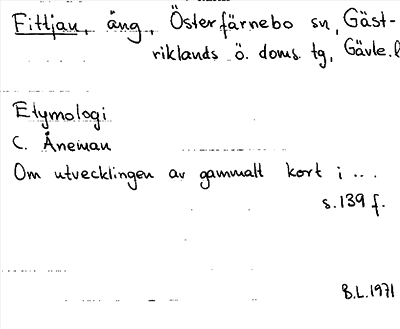 Fittjan, äng, Österfärnebo sn, Gäst-
riklands ö. doms. tg, Gävle. l
Etymologi
C. Åneman
Om utvecklingen av gammalt kort i ...
s. 139 f.
B.L. 1971